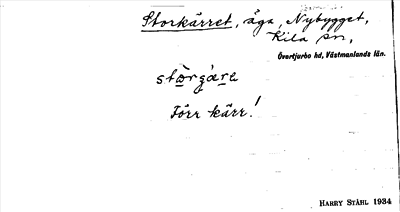 Storkärret, äga, Nybygget,
Kila sn,
Övertjurbo hd, Västmanlands län.
stòrgǽrɛ
Förr kärr!
HARRY STÅHL 1934